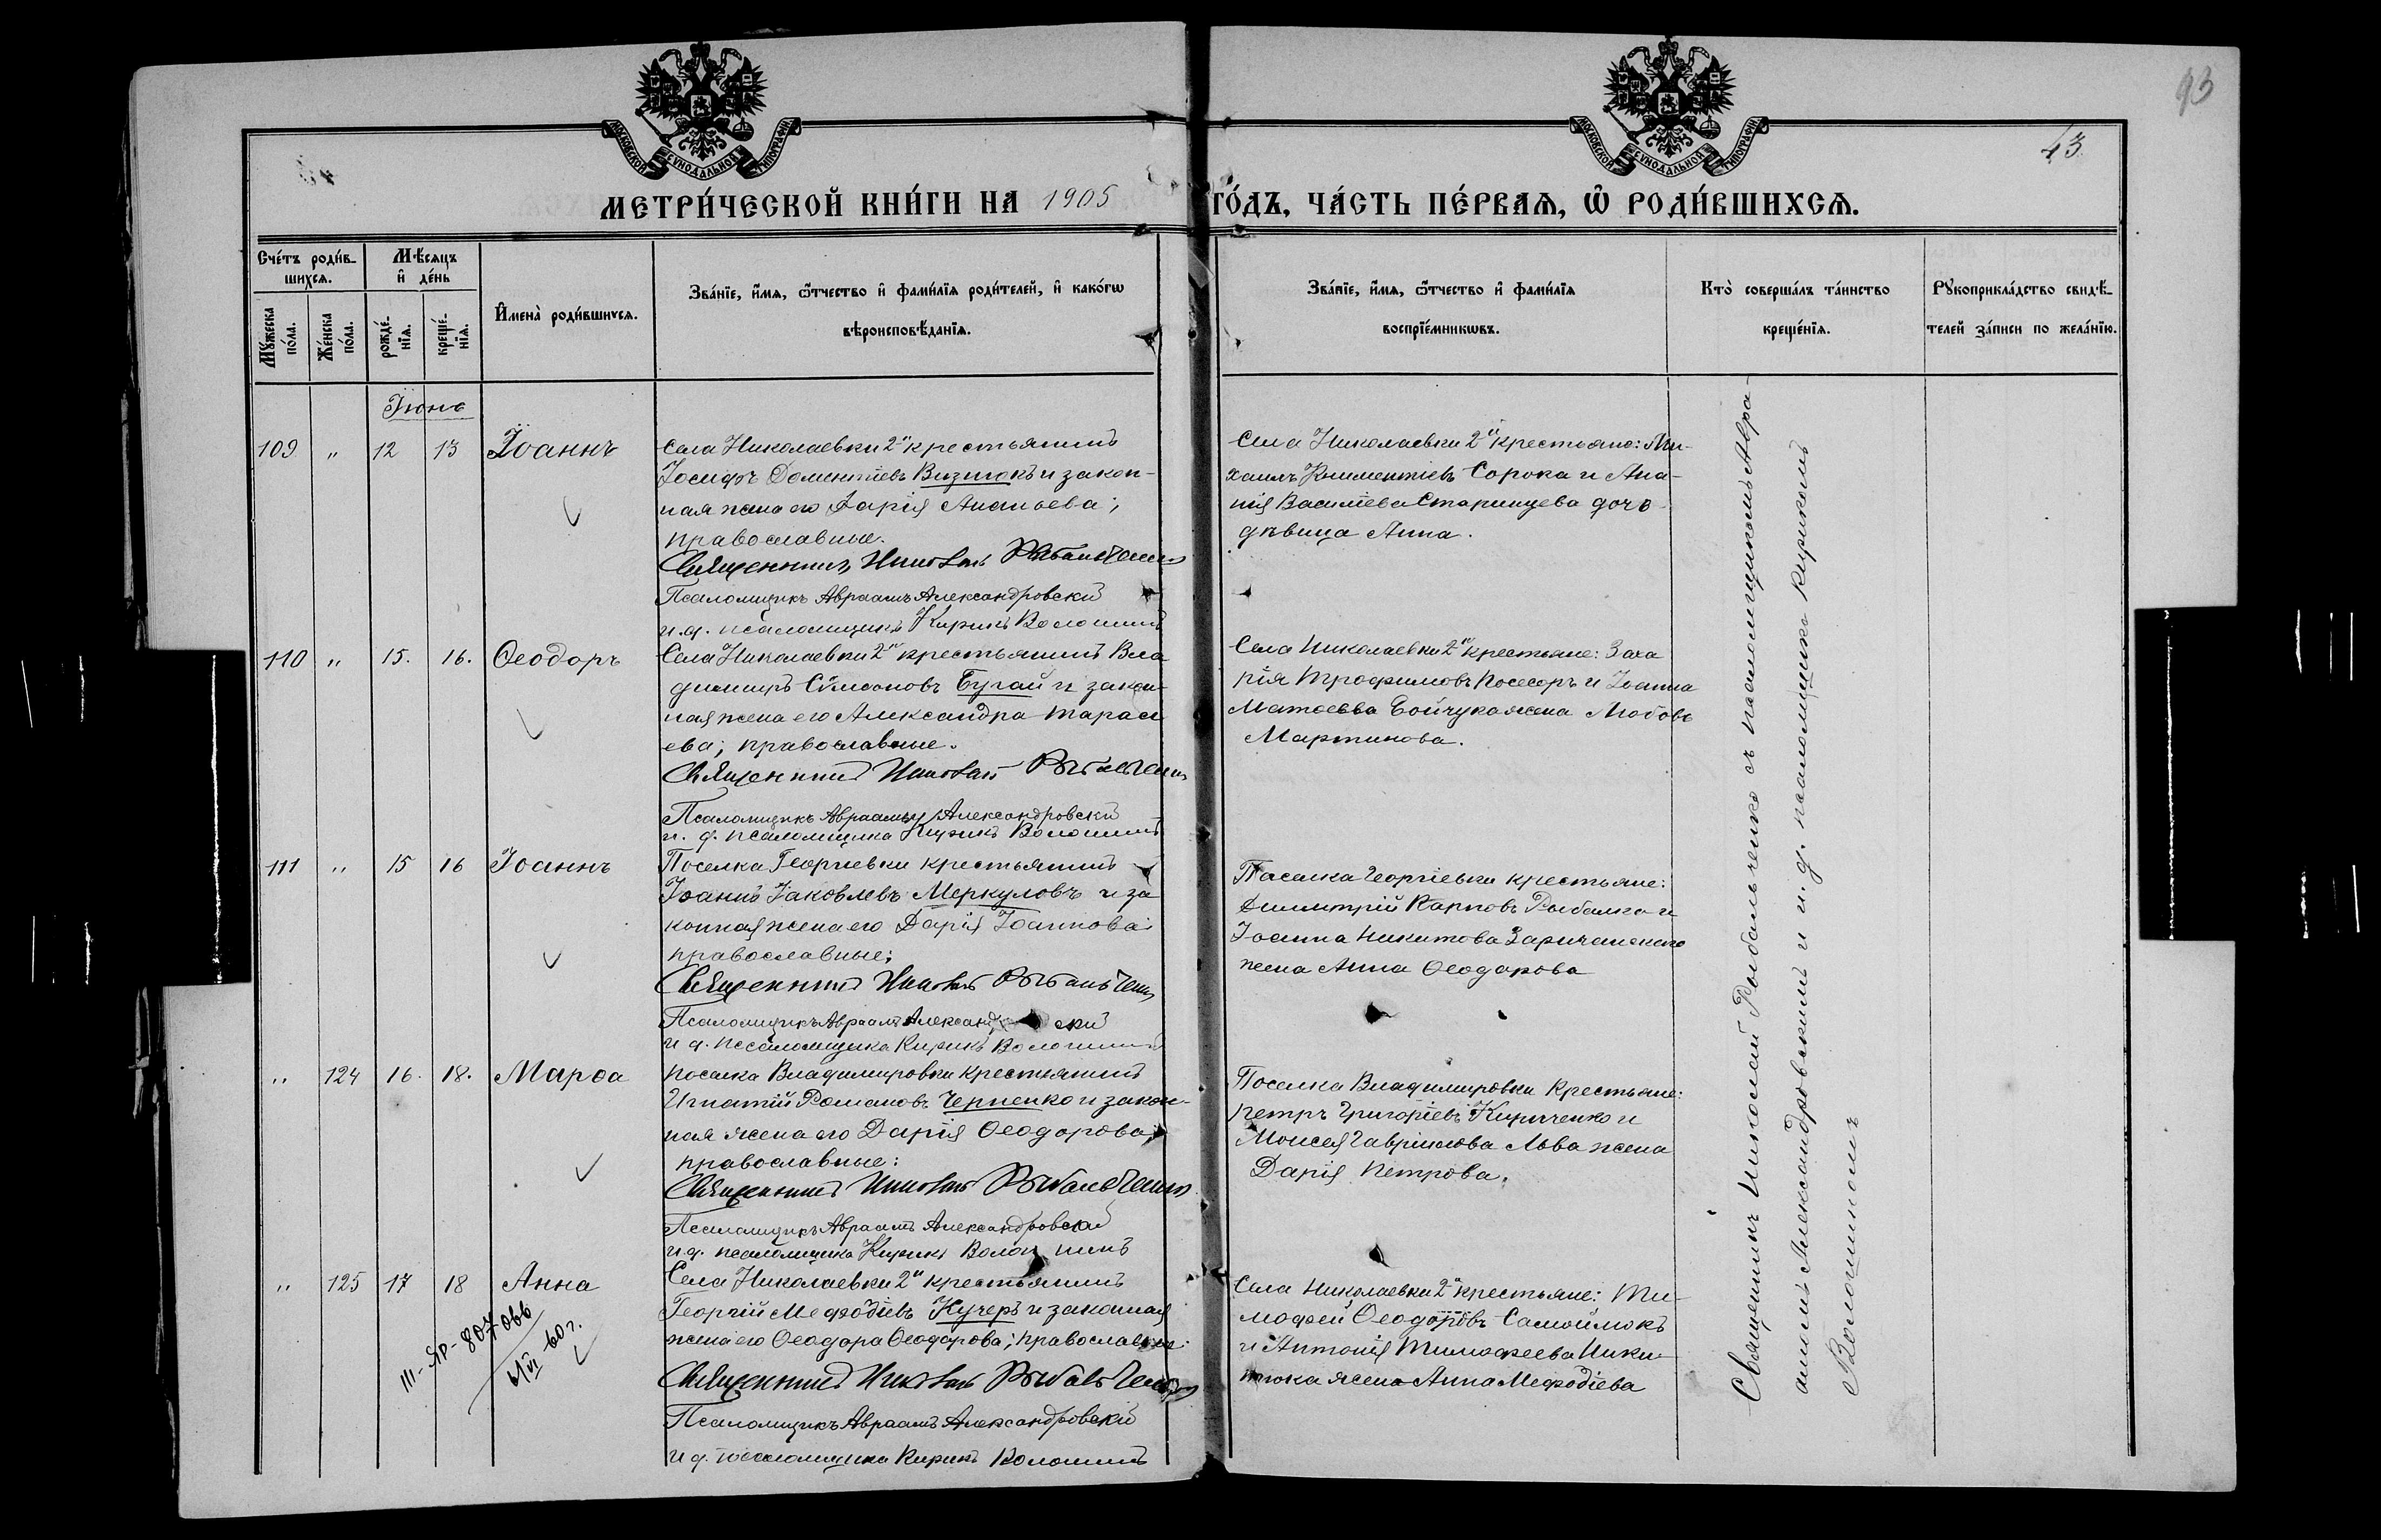 93
43
МОСКОВСКОЙ СѴНОДАЛЬНОЙ ТИПОГРАФІИ
МОСКОВСКОЙ СѴНОДАЛЬНОЙ ТИПОГРАФІИ
МЕТРИ́ЧЕСКОЙ КНИ́ГИ НА 1905 ГО́ДЪ, ЧА́СТЬ ПЕ́РВАѦ, Ѡ РОДИ́ВШИХСѦ.
Сче́тъ роди́в-
шихсѧ.
Мѣ́сѧцъ
и҆ де́нь
Мꙋ́жеска
по́ла.
Же́нска
по́ла.
рожде́-
нїѧ.
креще́-
нїѧ.
И҆мена̀ роди́вшихсѧ.
Зва́нїе, и҆́мѧ, ѻ҆́тчество и҆ фами́лїѧ роди́телей, и҆ како́гѡ
вѣроисповѣ́данїѧ.
Зва́нїе, и҆́мѧ, ѻ҆́тчество и҆ фами́лїѧ
воспрїе́мникѡвъ.
Кто̀ соверша́лъ та́инство
креще́нїѧ.
Рꙋкоприкла́дство свидѣ́-
телей за́писи по жела́нїю.
Іюнь
109 " 12 13 Іоаннъ
Села Николаевки 2й крестьянинъ
Іосифъ Доментіевъ Визинокъ и закон-
ная жена его Дарія Ананьева;
православные.
Священникъ Николай Рыбальченко
Псаломщикъ Авраамъ Александровскій
и.д. псаломщика Кирикъ Волошинъ
Села Николаевки 2й крестьяне: Ми-
хаилъ Климентіевъ Сорока и Ана-
нія Василіева Старинцева дочь
дѣвица Анна.
110 " 15. 16. Ѳеодоръ
Села Николаевки 2й крестьянинъ Вла
димиръ Сѵмеоновъ Бугай и закон-
ная жена его Александра Тарасі
ева; православные.
Священникъ Николай Рыбальченко
Псаломщикъ Авраамъ Александровскій
и. д. псаломщика Кирикъ Волошинъ
Села Николаевки 2й крестьяне: Заха
рія Трофимовъ Посесоръ и Іоанна
Матѳеева Бойчука жена Любовь
Мартинова.
111 " 15 16 Іоаннъ
Поселка Георгіевки крестьянинъ
Іоаннъ Іаковлевъ Меркуловъ и за
конная жена его Дарія Іоаннова;
православные;
Священникъ Николай Рыбальченко
Псаломщикъ Авраамъ Александ скій
и д. псаломщика Кирикъ Волошинъ
Поселка Георгіевки крестьяне:
Димитрій Карповъ Рыбалко и
Іоанна Никитова Заричанского
жена Анна Ѳеодорова
" 124 16. 18. Марѳа
Поселка Владимировки крестьянинъ
Игнатій Романовъ Черненко и закон-
ная жена его Дарія Ѳеодорова;
православные:
Священникъ Николай Рыбальченко
Псаломщикъ Авраамъ Александровскій
и.д. псаломщика Кирикъ Волошинъ
Поселка Владимировки крестьяне:
Петръ Григоріевъ Кириченко и
Моисея Гавріилова Льва жена
Дарія Петрова.
" 125 17 18 Анна
III-ЯР-807066
60 г.
Села Николаевки 2й крестьянинъ
Георгій Меѳодіевъ Кучеръ и законная
жена его Ѳеодора Ѳеодорова; православные:
Священникъ Николай Рыбальченко
Псаломщикъ Авраамъ Александровскій
и д. псаломщика Кирикъ Волошинъ
Села Николаевки 2й крестьяне: Ти-
моѳей Ѳеодоровъ Самойлюкъ
и Антонія Тимоѳеева Ники-
тюка жена Анна Меѳодіева
Священникъ Николай Рыбальченко съ псаломщикомъ Авра-
амомъ Александровскимъ и и. д. псаломщика Кирикомъ
Волошиномъ